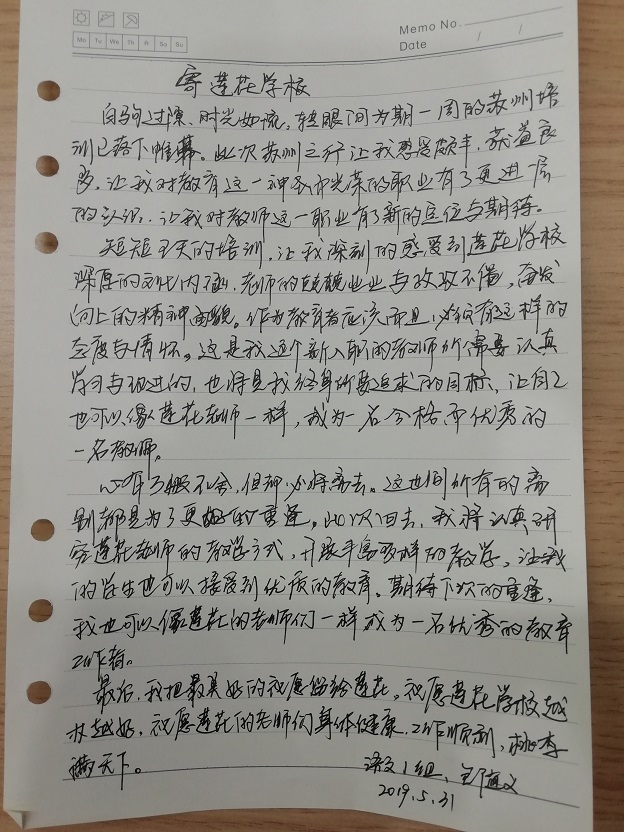 Memo No.
Date / /
Mo Tu We Th Fr Sa Su
寄莲花学校
白驹过隙、时光如流，转眼间为期一周的苏州培
训已落下帷幕。此次苏州之行让我感受颇丰，获益良
多，让我对教育这一神圣而光荣的职业有了更进一层
的认识，让我对教师这一职业有了新的定位与期待。
短短五天的培训，让我深刻的感受到莲花学校
深厚的文化内涵，老师的兢兢业业与孜孜不倦，奋发
向上的精神面貌。作为教育者应该而且必须有这样的
态度与情怀。这是我这个新入职的教师所需要认真
学习与改进的，也将是我终身所要追求的目标，让自己
也可以像莲花老师一样，成为一名合格而优秀的
一名教师。
心有万般不舍，但却必将离去。这世间所有的离
别都是为了更好的重逢。此次回去，我将认真研
究莲花老师的教学方式，开展丰富多样的教学，让我
的学生也可以接受到优质的教育。期待下次的重逢，
我也可以像莲花的老师们一样成为一名优秀的教育
工作者。
最后，我把最美好的祝愿留给莲花。祝愿莲花学校越
办越好，祝愿莲花的老师们身体健康，工作顺利，桃李
满天下。
语文1组，
2019.5.31